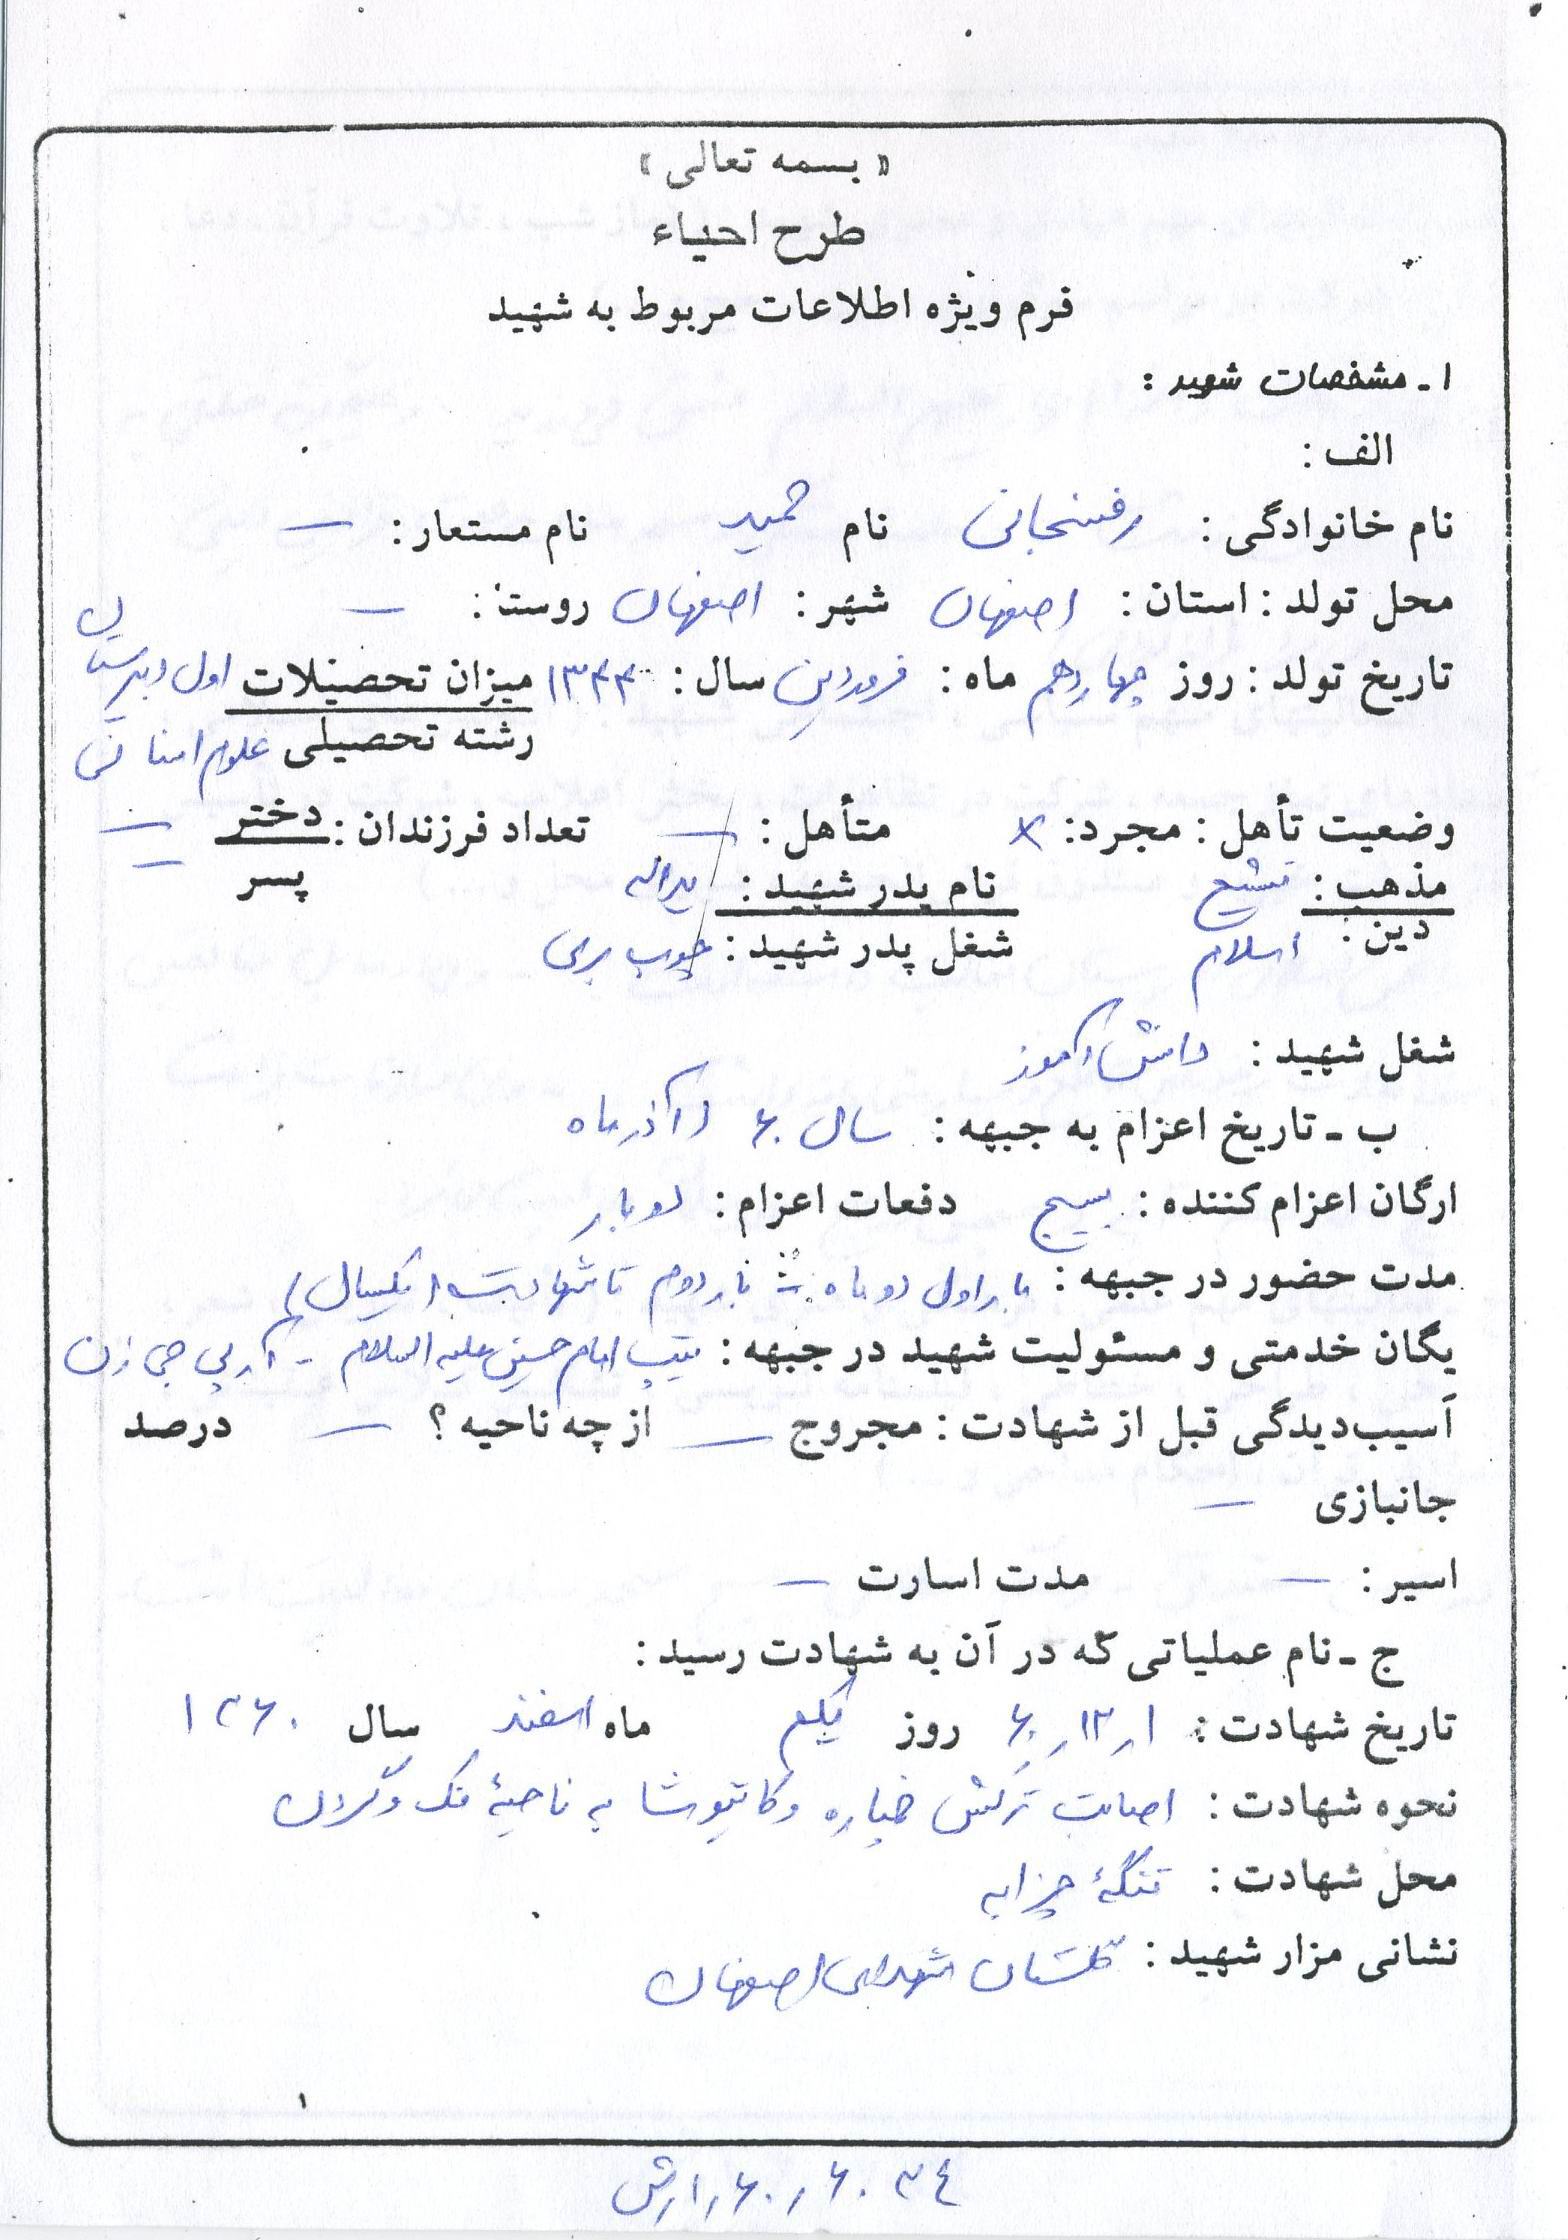 « بسمه تعالی »
طرح احیاء
فرم ویژه اطلاعات مربوط به شهید
۱ ـ مشخصات شهید :
الف :
نام خانوادگی : رفسنجانی نام حمید نام مستعار : —
محل تولد : استان : اصفهان شهر : اصفهان روستا : —
تاریخ تولد : روز چهاردهم ماه : فروردین سال : ۱۳۴۴ میزان تحصیلات اول دبیرستان
رشته تحصیلی علوم انسانی
وضعیت تأهل : مجرد : × متأهل : — تعداد فرزندان : دختر —
پسر —
مذهب : تشیع نام پدر شهید : یداله
دین : اسلام شغل پدر شهید : چوب بری
شغل شهید : دانش آموز
ب ـ تاریخ اعزام به جبهه : سال ۶۰ آذر ماه
ارگان اعزام کننده : بسیج دفعات اعزام : دو بار
مدت حضور در جبهه : بار اول دو ماه بار دوم تا شهادت
یگان خدمتی و مسئولیت شهید در جبهه : تیپ امام حسین علیه السلام - آر پی جی زن
آسیب‌دیدگی قبل از شهادت : مجروح — از چه ناحیه ؟ — درصد
جانبازی —
اسیر : — مدت اسارت —
ج ـ نام عملیاتی که در آن به شهادت رسید :
تاریخ شهادت : ۱ر۱۲ر۶۰ روز یکم ماه اسفند سال ۱۳۶۰
نحوه شهادت : اصابت ترکش خمپاره و کاتیوشا به ناحیهٔ فک و گردن
محل شهادت : تنگهٔ چزابه
نشانی مزار شهید : گلستان شهدای اصفهان
۱